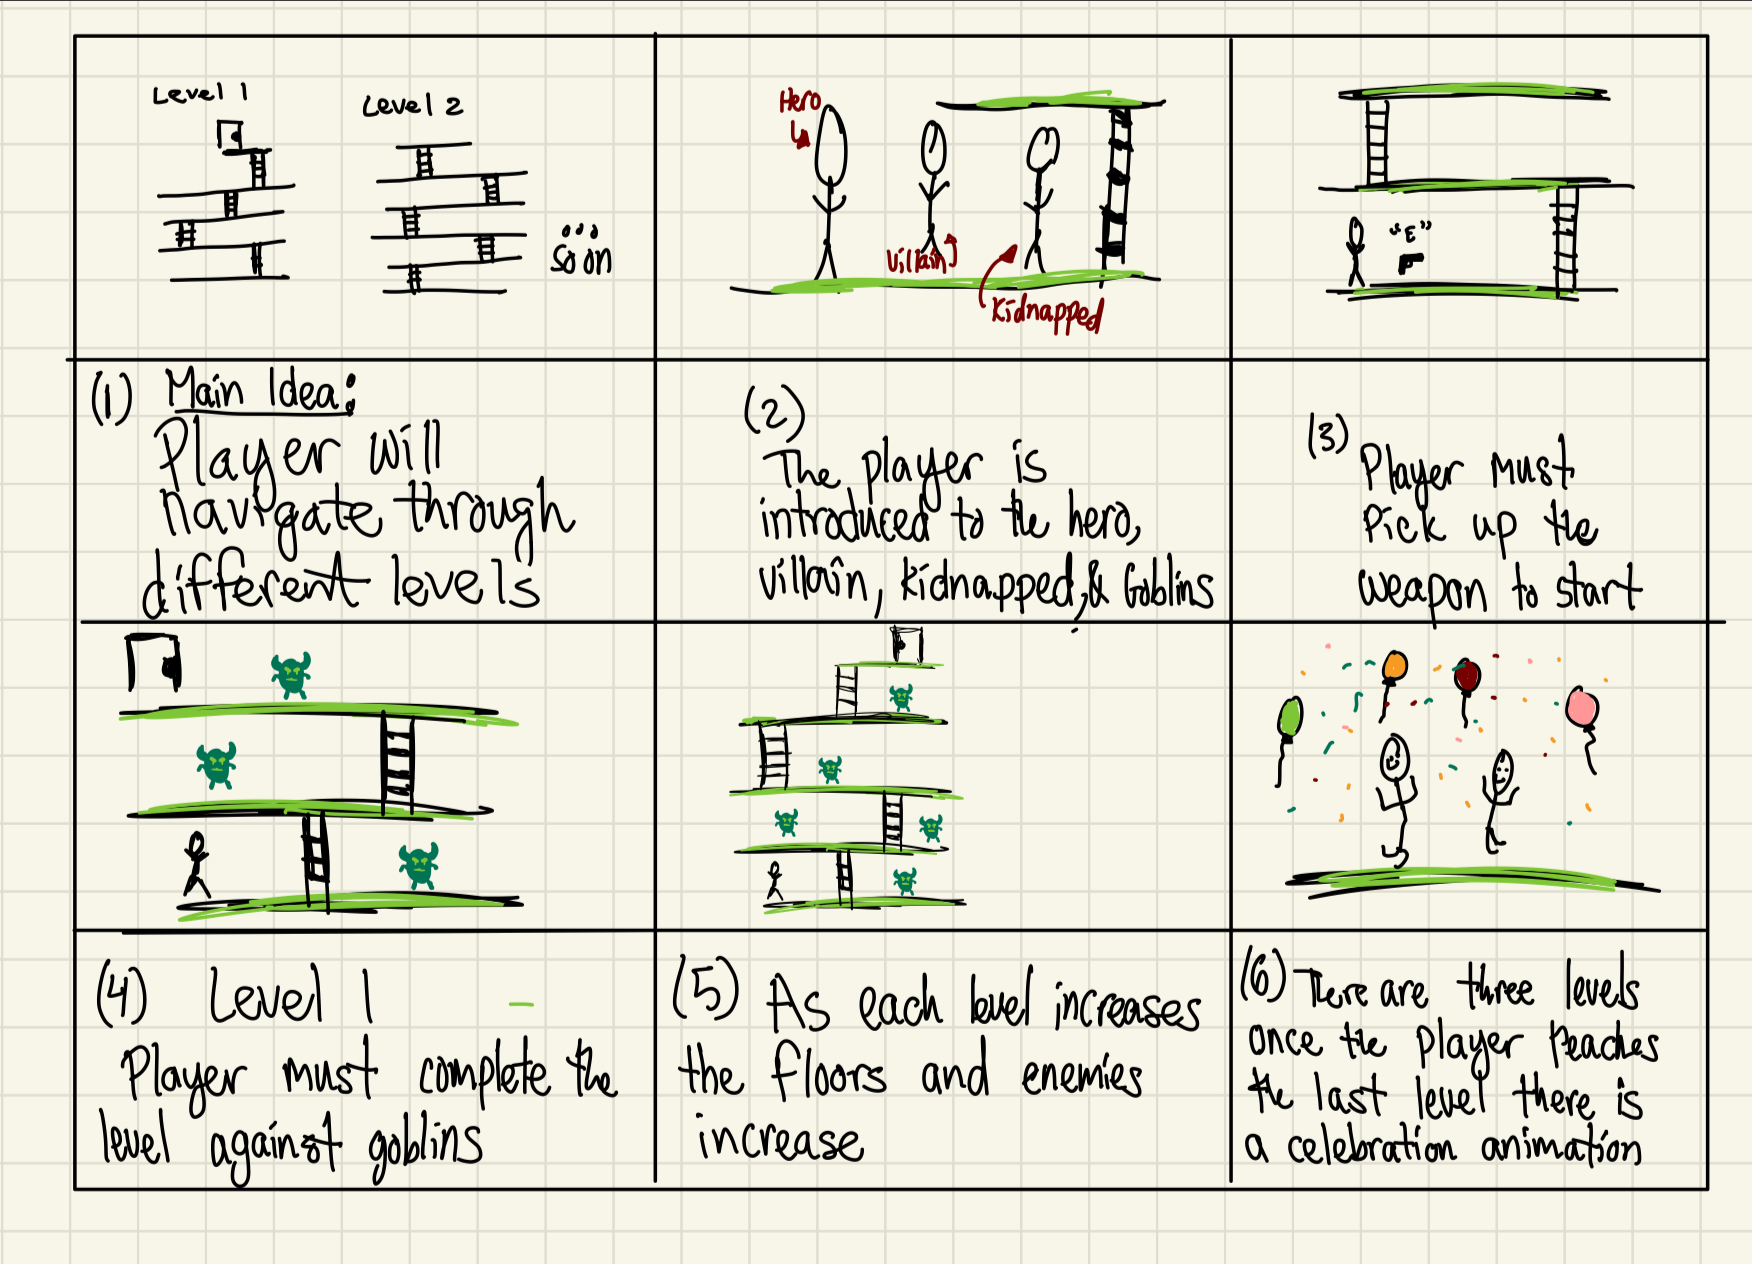 Level 1
Level 2
...
soon
Hero
Villain
Kidnapped
"E"
(1) Main Idea:
Player will
navigate through
different levels
(2)
The player is
introduced to the hero,
villain, kidnapped, & Goblins
(3) Player must
Pick up the
weapon to start
(4) Level 1
Player must complete the
level against goblins
(5) As each level increases
the floors and enemies
increase
(6) There are three levels
once the player Reaches
the last level there is
a celebration animation